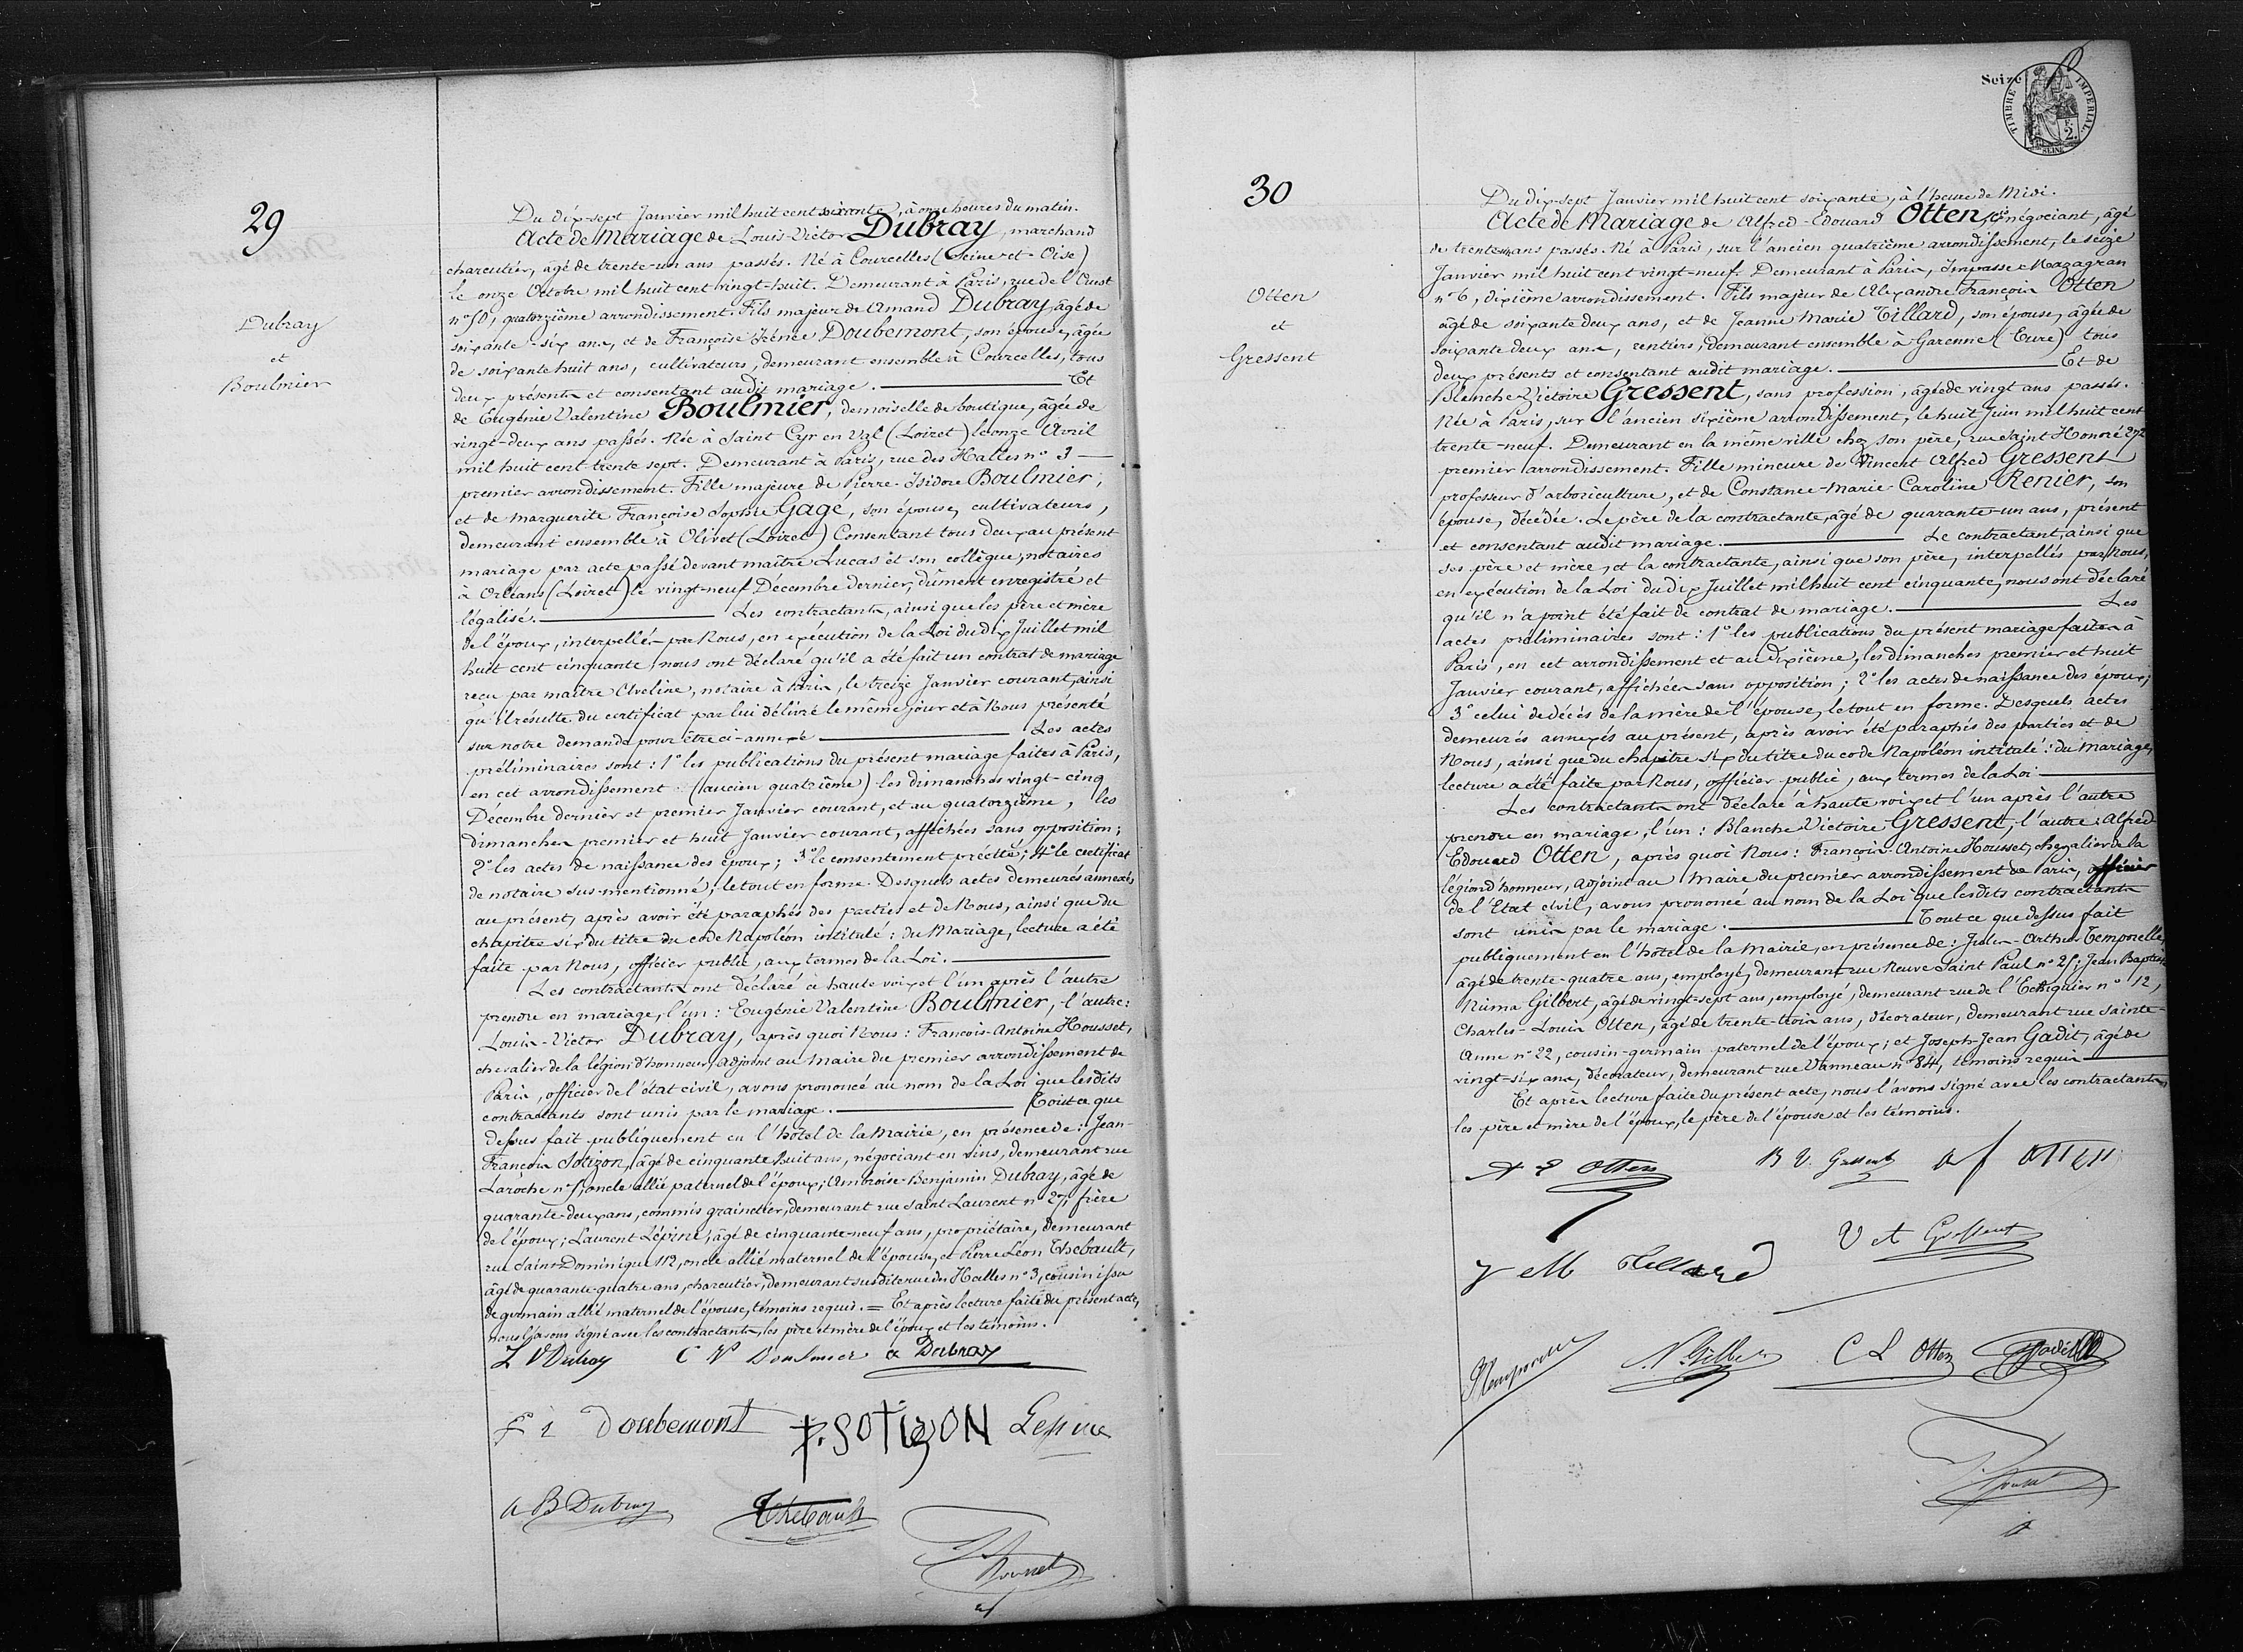 29
Dubray
et
Boulmier
Du dix-sept Janvier mil huit cent soixante, à onze heures du matin.
Acte de Mariage de Louis-Victor Dubray, marchand
charcutier, âgé de trente-un ans passés. Né à Courcelles (Seine-et-Oise)
le onze Octobre mil huit cent vingt-huit. Demeurant à Paris, rue de l'Ouest
n° 50, quatorzième arrondissement. Fils majeur de Amand Dubray, âgé de
soixante-six ans, et de Françoise Irénée Doubemont, son épouse, âgée
de soixante huit ans, cultivateurs, demeurant ensemble à Courcelles, tous
deux présents et consentant audit mariage. — Et
de Eugénie Valentine Boulmier, demoiselle de boutique, âgée de
vingt-deux ans passés. Née à Saint Cyr en Val (Loiret) le onze Avril
mil huit cent trente sept. Demeurant à Paris, rue des Halles n° 3 —
premier arrondissement. Fille majeure de Pierre-Isidore Boulmier,
et de Marguerite Françoise Sophie Gagé, son épouse, cultivateurs,
demeurant ensemble à Olivet (Loiret) Consentant tous deux au présent
mariage par acte passé devant maître Lucas et son collègue, notaires
à Orléans (Loiret) le vingt-neuf Décembre dernier, dûment enregistré et
légalisé. — Les contractants, ainsi que les père et mère
de l'époux, interpellés par Nous, en exécution de la Loi du dix Juillet mil
huit cent cinquante, nous ont déclaré qu'il a été fait un contrat de mariage
reçu par maître Aveline, notaire à Paris, le treize Janvier courant, ainsi
qu'il résulte du certificat par lui délivré le même jour et à Nous présenté
sur notre demande pour être ci-annexé — Les actes
préliminaires sont: 1° les publications du présent mariage faites à Paris,
en cet arrondissement (ancien quatrième) les dimanches vingt-cinq
Décembre dernier et premier Janvier courant, et au quatorzième, les
dimanches premier et huit Janvier courant, affichées sans opposition;
2° les actes de naissance des époux; 3° le consentement précité; 4° le certificat
de notaire sus-mentionné; le tout en forme. Desquels actes demeurés annexés
au présent, après avoir été paraphés des parties et de Nous, ainsi que du
chapitre six du titre du code Napoléon intitulé: du Mariage, lecture a été
faite par Nous, officier public, aux termes de la Loi. —
Les contractants ont déclaré à haute voix et l'un après l'autre
prendre en mariage, l'un: Eugénie Valentine Boulmier, l'autre:
Louis-Victor Dubray, après quoi Nous: François-Antoine Housset,
chevalier de la légion d'honneur, adjoint au Maire du premier arrondissement de
Paris, officier de l'état civil, avons prononcé au nom de la Loi que lesdits
contractants sont unis par le mariage. — Tout ce que
dessus fait publiquement en l'hôtel de la Mairie, en présence de: Jean-
François Sotizon, âgé de cinquante huit ans, négociant en vins, demeurant rue
Laroche n° 5, oncle allié paternel de l'époux; Ambroise-Benjamin Dubray, âgé de
quarante-deux ans, commis grainetier, demeurant rue Saint Laurent n° 27, frère
de l'époux; Laurent Lépine, âgé de cinquante-neuf ans, propriétaire, demeurant
rue Saint-Dominique 112, oncle allié maternel de l'épouse, et Pierre Léon Thebault,
âgé de quarante-quatre ans, charcutier, demeurant susdite rue des Halles n° 3, cousin issu
de germain allié maternel de l'épouse, témoins requis. = Et après lecture faite du présent acte,
nous l'avons signé avec les contractants, les père et mère de l'époux et les témoins.
L V Dubray E V Boulmier a Dubray
F i Doubemont f. SOTIZON Lepine
A B Dubray Thebault
Housset
Seize
TIMBRE IMPERIAL
F. 2.
SEINE
30
Otten
et
Gressent
Du dix-sept Janvier mil huit cent soixante, à l'heure de Midi.
Acte de Mariage de Alfred-Edouard Otten, négociant, âgé
de trente un ans passés. Né à Paris, sur l'ancien quatrième arrondissement, le seize
Janvier mil huit cent vingt-neuf. Demeurant à Paris, Impasse Mazagran
n° 6, dixième arrondissement. Fils majeur de Alexandre François Otten
âgé de soixante deux ans, et de Jeanne Marie Tillard, son épouse, âgée de
soixante deux ans, rentiers, demeurant ensemble à Garenne (Eure) tous
deux présents et consentant audit mariage. — Et de
Blanche Victoire Gressent, sans profession, âgée de vingt ans passés.
Née à Paris, sur l'ancien sixième arrondissement, le huit Juin mil huit cent
trente-neuf. Demeurant en la même ville chez son père, rue Saint Honoré 272
premier arrondissement. Fille mineure de Vincent Alfred Gressent
professeur d'arboriculture, et de Constance-Marie Caroline Renier, son
épouse, décédée. Le père de la contractante, âgé de quarante-un ans, présent
et consentant audit mariage. — Le contractant, ainsi que
ses père et mère, et la contractante, ainsi que son père, interpellés par Nous,
en exécution de la Loi du dix Juillet mil huit cent cinquante, nous ont déclaré
qu'il n'a point été fait de contrat de mariage. — Les
actes préliminaires sont: 1° les publications du présent mariage faites à
Paris, en cet arrondissement et au dixième, les dimanches premier et huit
Janvier courant, affichées sans opposition; 2° les actes de naissance des époux;
3° celui de décès de la mère de l'épouse, le tout en forme. Desquels actes
demeurés annexés au présent, après avoir été paraphés des parties et de
Nous, ainsi que du chapitre six du titre du code Napoléon intitulé: du Mariage,
lecture a été faite par Nous, officier public, aux termes de la Loi —
Les contractants ont déclaré à haute voix et l'un après l'autre
prendre en mariage, l'un: Blanche Victoire Gressent, l'autre: Alfred
Edouard Otten, après quoi Nous: François-Antoine Housset, chevalier de la
légion d'honneur, adjoint au Maire du premier arrondissement de Paris, officier
de l'Etat civil, avons prononcé au nom de la Loi que lesdits contractants
sont unis par le mariage. — Tout ce que dessus fait
publiquement en l'hôtel de la Mairie, en présence de: Jules-Arthur Temporelle,
âgé de trente-quatre ans, employé, demeurant rue Neuve Saint Paul n° 25; Jean Baptiste
Numa Gilbert, âgé de vingt-sept ans, employé, demeurant rue de l'Echiquier n° 12,
Charles-Louis Otten, âgé de trente-trois ans, décorateur, demeurant rue Sainte-
Anne n° 22, cousin-germain paternel de l'époux; et Joseph-Jean Gadit, âgé de
vingt-six ans, décorateur, demeurant rue Vanneau n° 84, témoins requis —
Et après lecture faite du présent acte, nous l'avons signé avec les contractants,
les père et mère de l'époux, le père de l'épouse et les témoins.
A E Otten B V. Gressent af OTTEN
J M Tillard V et A Gressent
Temporelle N. Gilbert C L Otten Gadit
Housset